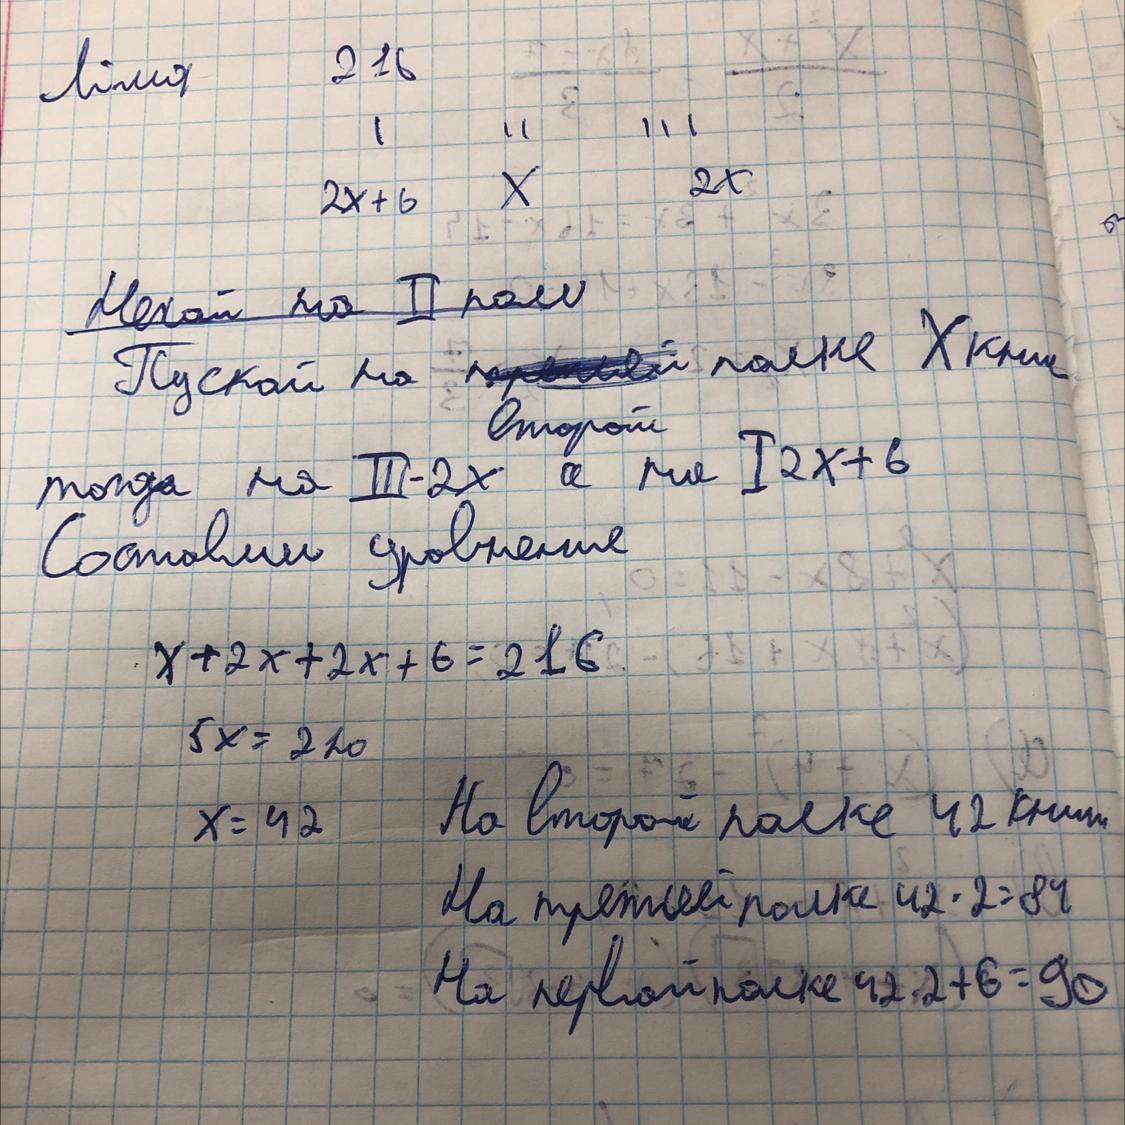 Лінія 216
I II III
2x+6 X 2x
Нехай на II поли
Пускай на полке X книг
второй
тогда на III-2X а на I 2X+6
Составим уровнение
x+2x+2x+6=216
5x=210
x=42 На второй полке 42 книги
На третьей полке 42·2=84
На первой полке 42·2+6=90